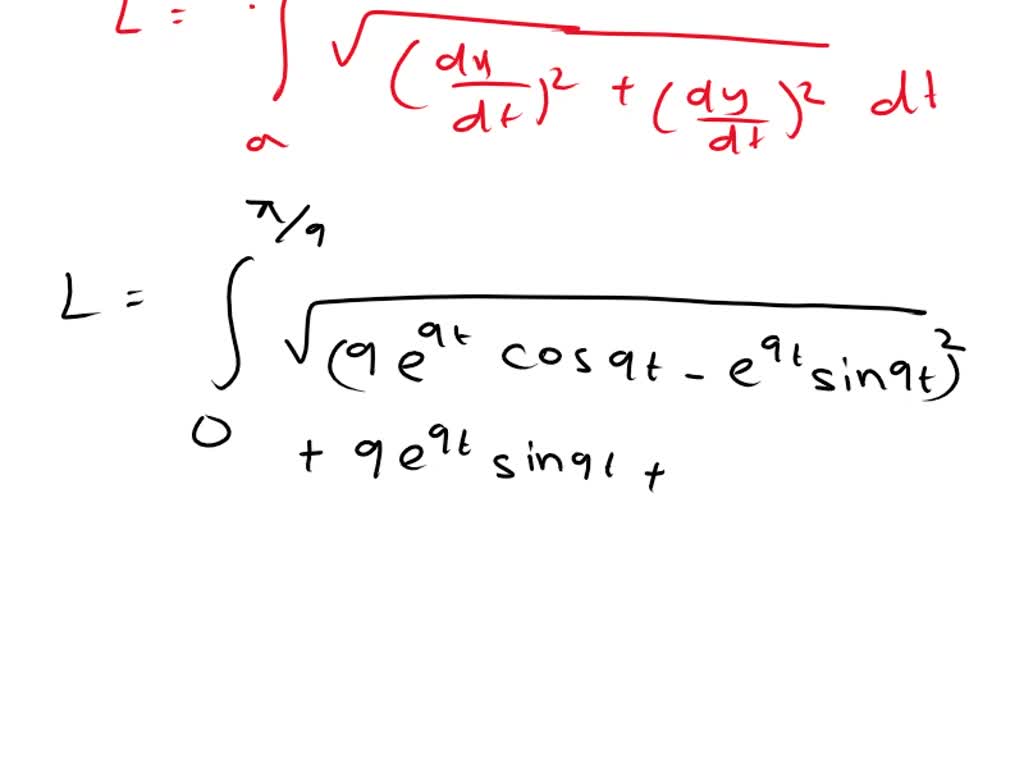 L = ∫ₐ √(dx/dt)² + (dy/dt)² dt
π/9
L = ∫ √(9e^9t cos9t - e^9t sin9t)²
0
+ 9e^9t sin9t +